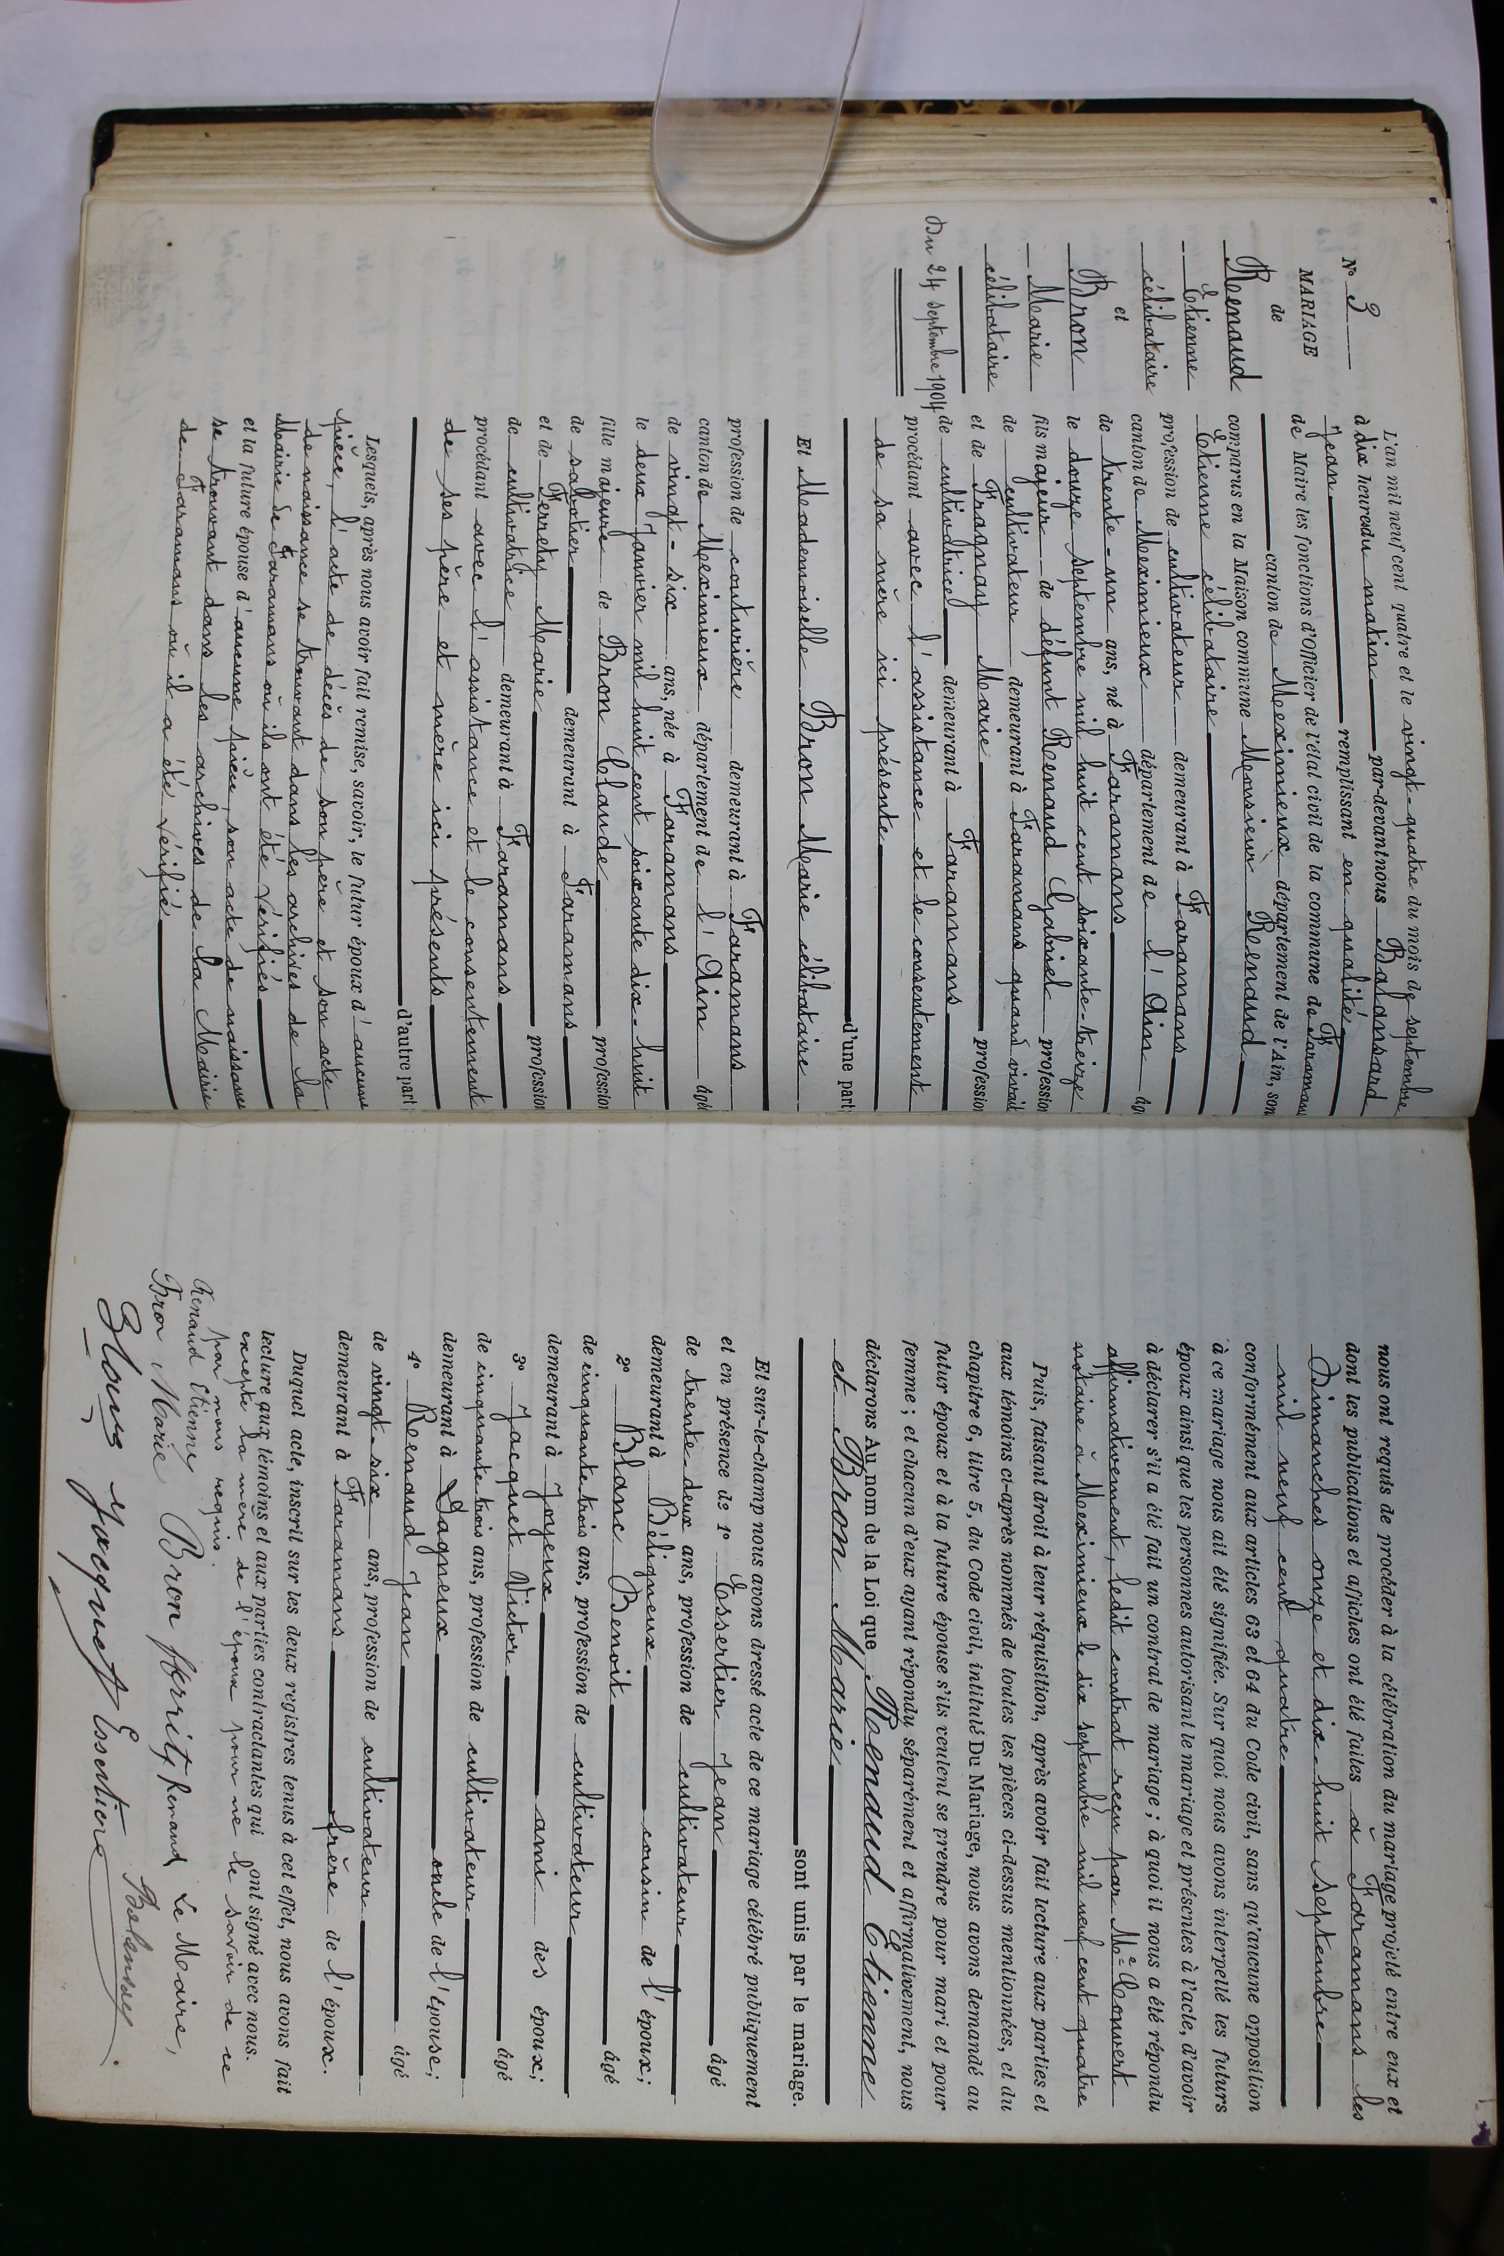 N° 3
MARIAGE
de
Renaud
Etienne
célibataire
et
Bron
Marie
célibataire
Du 24 septembre 1904
L'an mil neuf cent quatre et le vingt-quatre du mois de septembre
à dix heures du matin par-devant nous Balansard
Jean remplissant en qualité
de Maire les fonctions d'Officier de l'état civil de la commune de Faramans
canton de Meximieux département de l'Ain, son
comparus en la Maison commune Monsieur Renaud
Etienne célibataire
profession de cultivateur demeurant à Faramans
canton de Meximieux département de l'Ain âg
de trente-un ans, né à Faramans
le douze septembre mil huit cent soixante-treize
fils majeur de défunt Renaud Gabriel profession
de cultivateur demeurant à Faramans quand vivait
et de Fragnay Marie profession
de cultivatrice demeurant à Faramans
procédant avec l'assistance et le consentement
de sa mère ici présente
d'une part
Et Mademoiselle Bron Marie célibataire
profession de couturière demeurant à Faramans
canton de Meximieux département de l'Ain âgée
de vingt-six ans, née à Faramans
le deux Janvier mil huit cent soixante dix-huit
fille majeure de Bron Claude profession
de sabotier demeurant à Faramans
et de Ferrety Marie profession
de cultivatrice demeurant à Faramans
procédant avec l'assistance et le consentement
de ses père et mère ici présents
d'autre part
Lesquels, après nous avoir fait remise, savoir, le futur époux d'aucune
pièce, l'acte de décès de son père et son acte
de naissance se trouvant dans les archives de la
Mairie de Faramans où ils ont été vérifiés
et la future épouse d'aucune pièce, son acte de naissance
se trouvant dans les archives de la Mairie
de Faramans où il a été vérifié
nous ont requis de procéder à la célébration du mariage projeté entre eux et
dont les publications et affiches ont été faites à Faramans les
Dimanches onze et dix-huit Septembre
mil neuf cent quatre
conformément aux articles 63 et 64 du Code civil, sans qu'aucune opposition
à ce mariage nous ait été signifiée. Sur quoi nous avons interpellé les futurs
époux ainsi que les personnes autorisant le mariage et présentes à l'acte, d'avoir
à déclarer s'il a été fait un contrat de mariage ; à quoi il nous a été répondu
affirmativement, ledit contrat reçu par Me Convert
notaire à Meximieux le dix septembre mil neuf cent quatre
Puis, faisant droit à leur réquisition, après avoir fait lecture aux parties et
aux témoins ci-après nommés de toutes les pièces ci-dessus mentionnées, et du
chapitre 6, titre 5, du Code civil, intitulé Du Mariage, nous avons demandé au
futur époux et à la future épouse s'ils veulent se prendre pour mari et pour
femme ; et chacun d'eux ayant répondu séparément et affirmativement, nous
déclarons Au nom de la Loi que Renaud Etienne
et Bron Marie
sont unis par le mariage.
Et sur-le-champ nous avons dressé acte de ce mariage célébré publiquement
et en présence de 1° Essertier Jean âgé
de trente-deux ans, profession de cultivateur
demeurant à Béligneux cousin de l'époux ;
2° Blanc Benoit âgé
de cinquante trois ans, profession de cultivateur
demeurant à Joyeux ami des époux ;
3° Jacquet Victor âgé
de cinquante trois ans, profession de cultivateur
demeurant à Dagneux oncle de l'épouse ;
4° Renaud Jean âgé
de vingt-six ans, profession de cultivateur
demeurant à Faramans frère de l'époux.
Duquel acte, inscrit sur les deux registres tenus à cet effet, nous avons fait
lecture aux témoins et aux parties contractantes qui ont signé avec nous.
excepté la mère de l'époux pour ne le savoir de ce
par nous requis.
Renaud Etienne
Bron Marie Bron Renaud Le Maire,
Jacquet Essertier